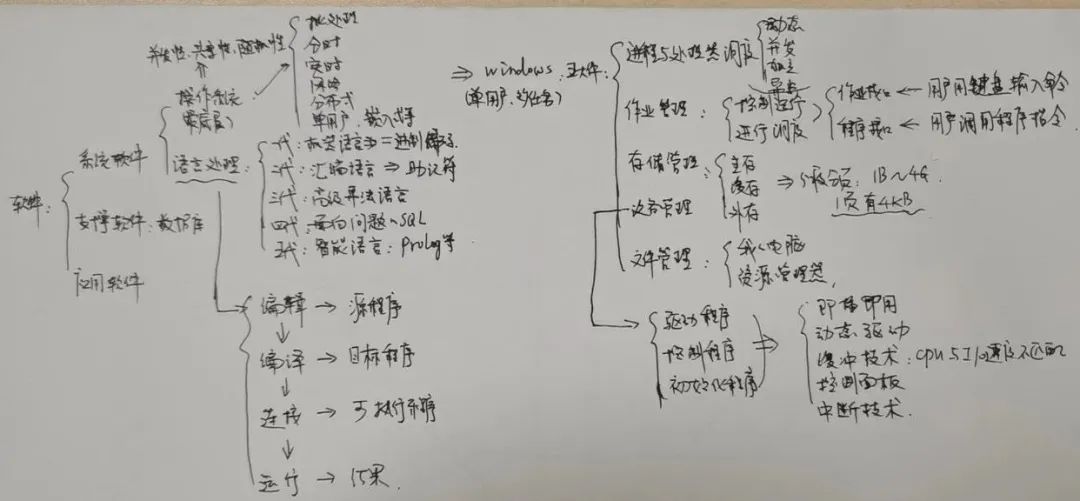 软件:
系统软件
支撑软件:数据库
应用软件
并发性、共享性、随机性
操作系统
(最底层)
批处理
分时
实时
网络
分布式
单用户、嵌入式等
语言处理:
一代:机器语言 ⇒ 二进制
二代:汇编语言 ⇒ 助记符
三代:高级算法语言
四代:面向问题 SQL
五代:智能语言:Prolog等
编辑 → 源程序
↓
编译 → 目标程序
↓
连接 → 可执行程序
↓
运行 → 结果.
⇒ windows 五大件:
(单用户、多任务)
进程与处理器调度
动态
并发
独立
异步
作业管理:
控制运行
进行调度
作业接口 ← 用户用键盘输入命令
程序接口 ← 用户调用程序指令.
存储管理:
主存
缓存
外存
⇒ 分页: 1B~4G.
1页有4KB
设备管理
文件管理:
我的电脑
资源管理器
驱动程序
控制程序
初始化程序
⇒
即插即用
动态驱动
缓冲技术:CPU与I/O速度不匹配
控制面板
中断技术.